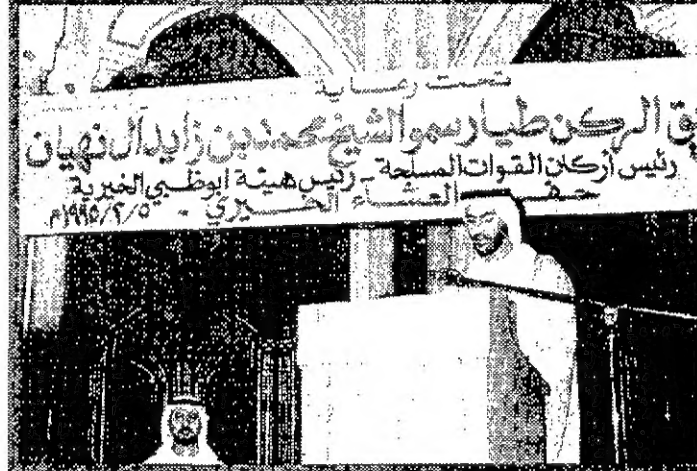 تحت رعاية
يق الركن طيار سمو الشيخ محمد بن زايد آل نهيان
رئيس أركان القوات المسلحة - رئيس هيئة ابوظبي الخيرية
حفـــــل العشاء الخــيري - ١٩٩٥/٢/٥م